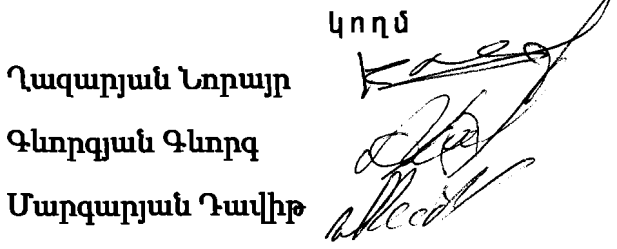 կողմ
Ղազարյան Նորայր
Գևորգյան Գևորգ
Մարգարյան Դավիթ